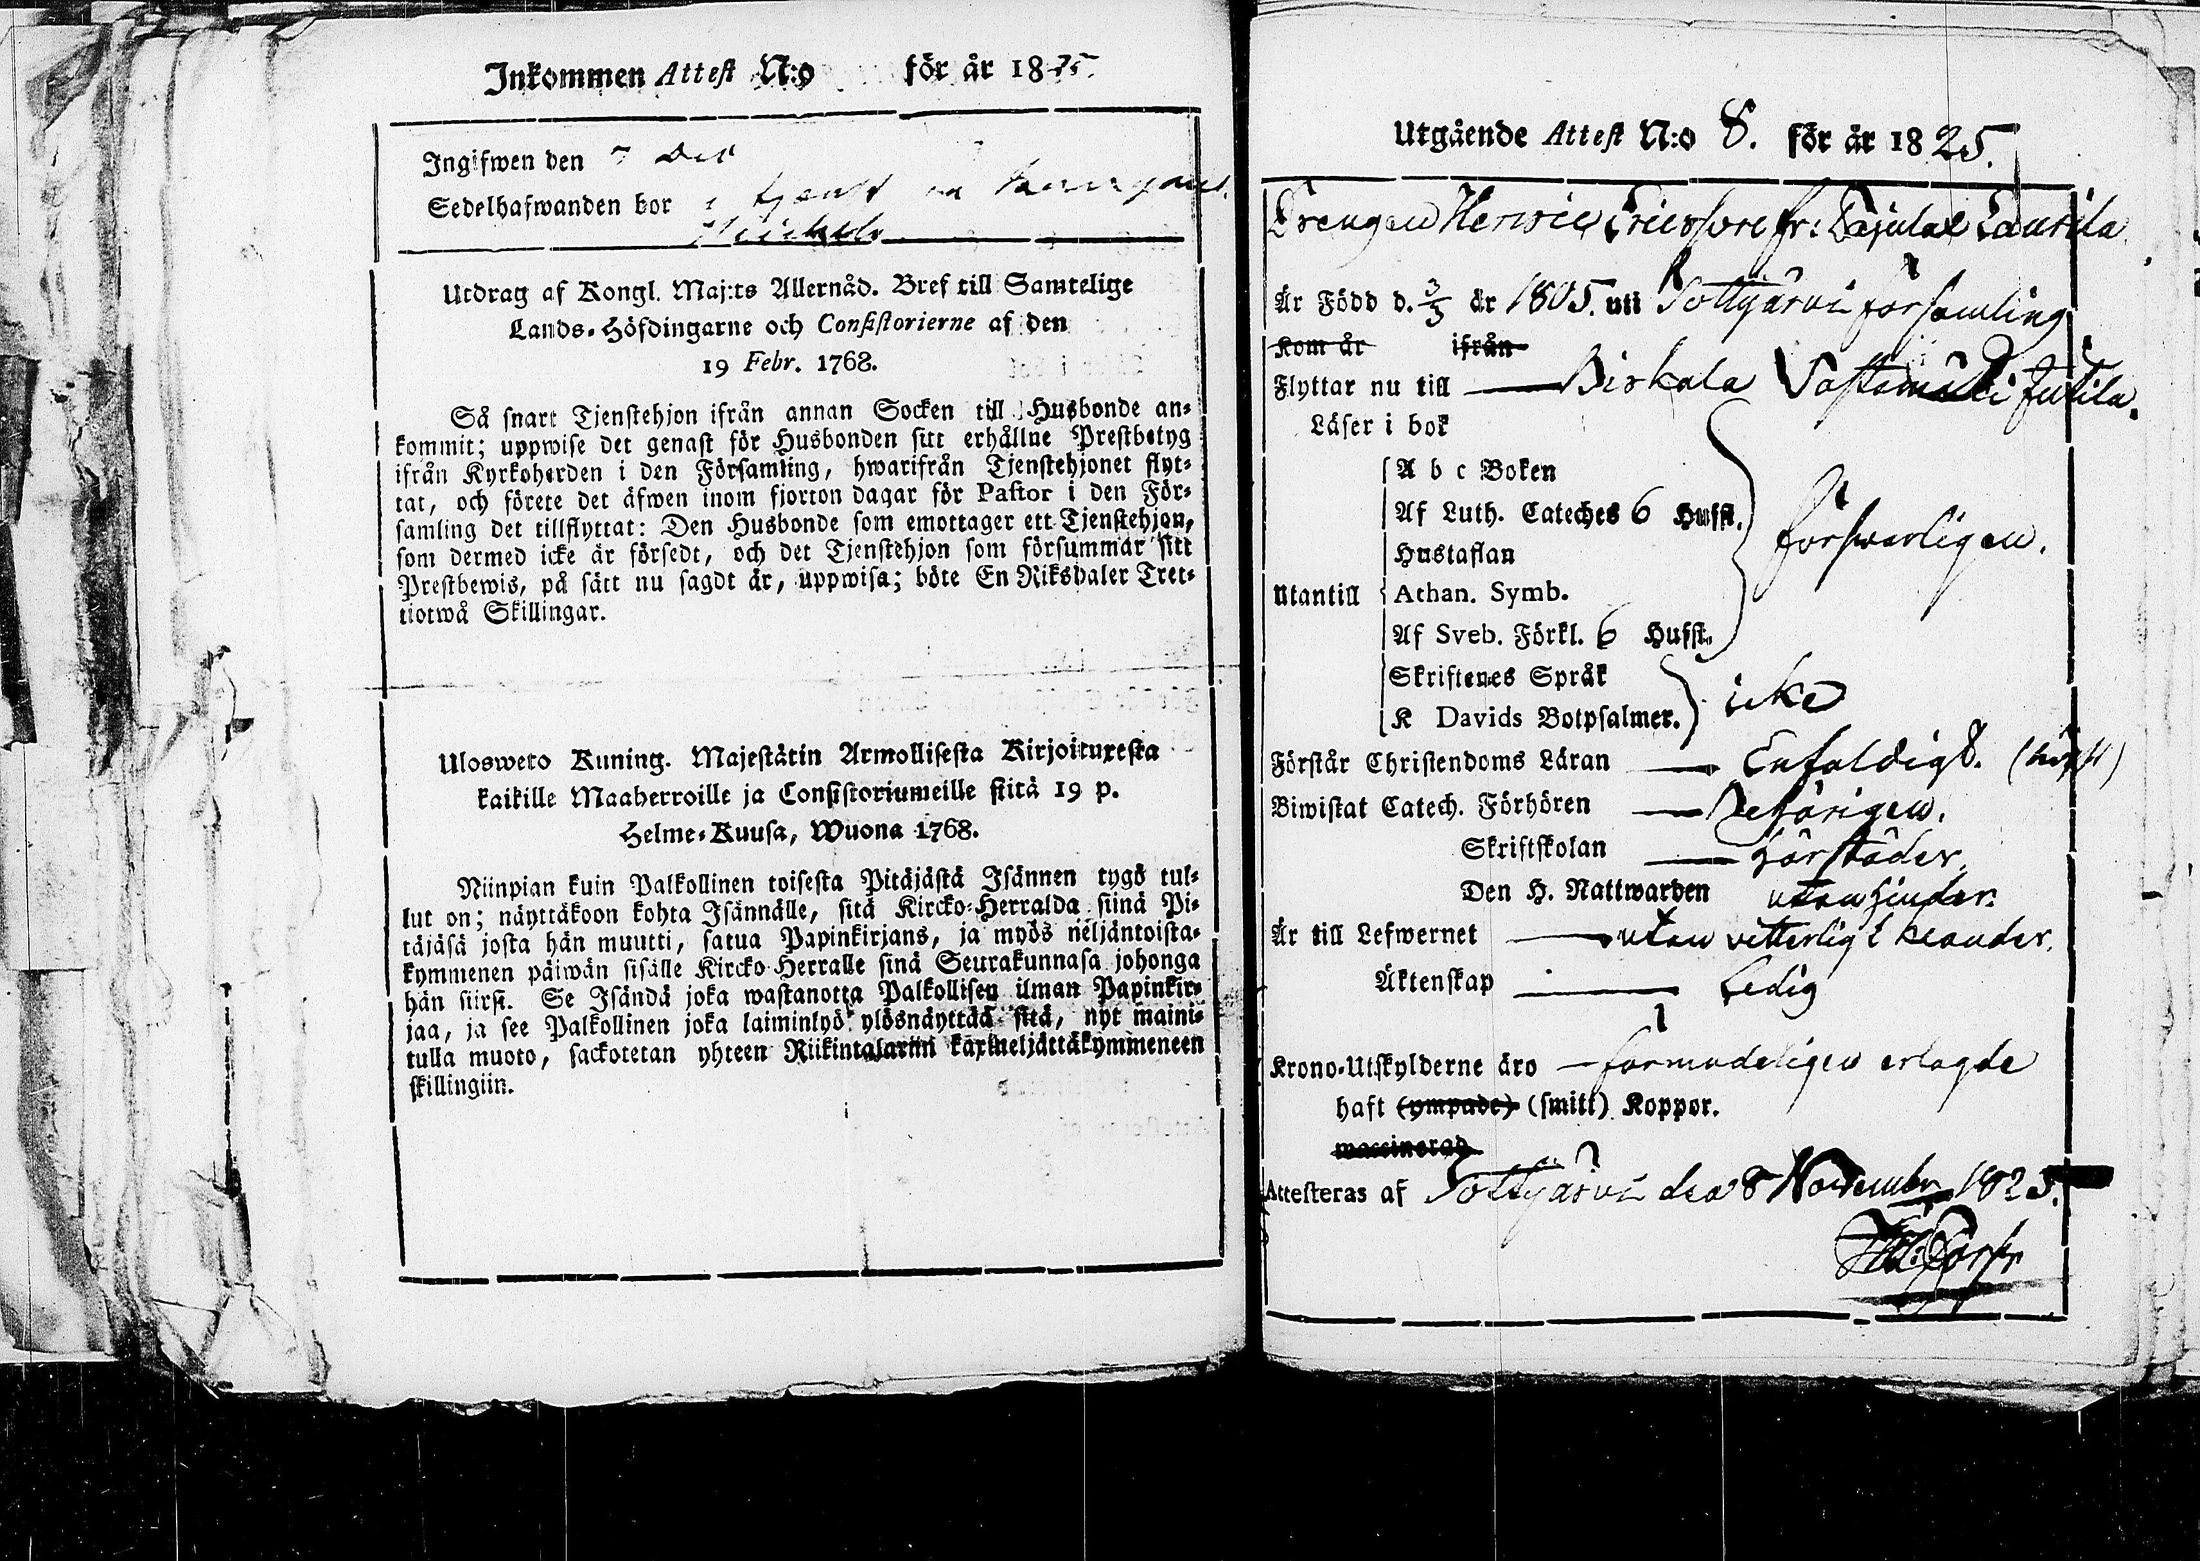 Inkommen Attest N:o för år 1825.
Ingifwen den 7 Dec
Sedelhafwanden bor i tjenst
Utdrag af Kongl. Maj:ts Allernåd. Bref till Samtelige
Lands-Höfdingarne och Consistorierne af den
19 Febr. 1768.
Så snart Tjenstehjon ifrån annan Socken till Husbonde an-
kommit; uppwise det genast för Husbonden sitt erhållne Prestbetyg
ifrån Kyrkoherden i den Församling, hwarifrån Tjenstehjonet flyt-
tat, och förete det äfwen inom fjorton dagar för Pastor i den För-
samling det tillflyttat: Den Husbonde som emottager ett Tjenstehjon,
som dermed icke är försedt, och det Tjenstehjon som försummar sitt
Prestbewis, på sätt nu sagdt är, uppwisa; böte En Riksdaler Tret-
tiotwå Skillingar.
Ulosweto Kuning. Majestätin Armollisesta Kirjoituxesta
kaikille Maaherroille ja Consistoriumeille siitä 19 p.
Helme-Kuusa, Wuona 1768.
Niinpian kuin Palkollinen toisesta Pitäjästä Isännen tygö tul-
lut on; näyttäkoon kohta Isännälle, sitä Kircko-Herralda siinä Pi-
täjäsä josta hän muutti, satua Papinkirjans, ja myös neljäntoista-
kymmenen päiwän sisälle Kircko Herralle sinä Seurakunnasa johonga
hän siirsi. Se Isändä joka wastanotta Palkollisen ilman Papinkir-
jaa, ja see Palkollinen joka laiminlyö ylösnäyttää sitä, nyt maini-
tulla muoto, sackotetan yhteen Riikintalariin kaxineljättäkymmeneen
skillingiin.
Utgående Attest N:o 8. för år 1825.
Drengen Henric Ericsson fr: Pajula Laurila
Är Född d. 3/3 år 1805. uti Pöttjärvi församling
Kom år ifrån
Flyttar nu till Birkala Jutila.
Läser i bok
A b c Boken
Af Luth. Cateches 6 Hufst.
Hustaflan
försvarligen.
Utantill Athan. Symb.
Af Sveb. Förkl. 6 Hufst.
Skriftenes Språk
icke
K Davids Botpsalmer.
Förstår Christendoms Läran Enfaldigt.
Biwistat Catech. Förhören Behörigen.
Skriftskolan Härstädes
Den H. Nattwarden utan hinder.
Är till Lefwernet utan vitterligt klander.
Äktenskap Ledig
Krono-Utskylderne äro förmodeligen erlagde
haft (ympade) (smitt) Koppor.
waccinerad
Attesteras af Pöttjärvi den 8 November 1825.